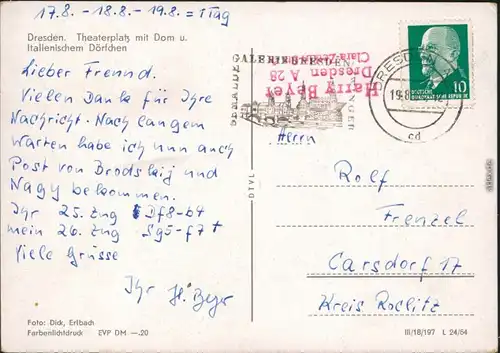 17.8. - 18.8. - 19.8. = 1 Tag
Dresden. Theaterplatz mit Dom u.
Italienischem Dörfchen
Lieber Freund.
Vielen Dank für Ihre
Nachricht. Nach langem
Warten habe ich nun auch
Post von Brodskij und
Nagy bekommen.
Ihr 25. Zug Df8-b4
mein 26. Zug Sg5-f7+
Viele Grüsse
Ihr H. Beyer
Foto: Dick, Erlbach
Farbenlichtdruck EVP DM —.20
GALERIE DRESDEN
Harry Beyer
Dresden A 28
DRESDEN
19.8.
cd
DEUTSCHE
DEMOKRATISCHE REPUBLIK
10
Herrn
Rolf
Frenzel
Carsdorf 17
Kreis Rochlitz
III/18/197 L 24/64